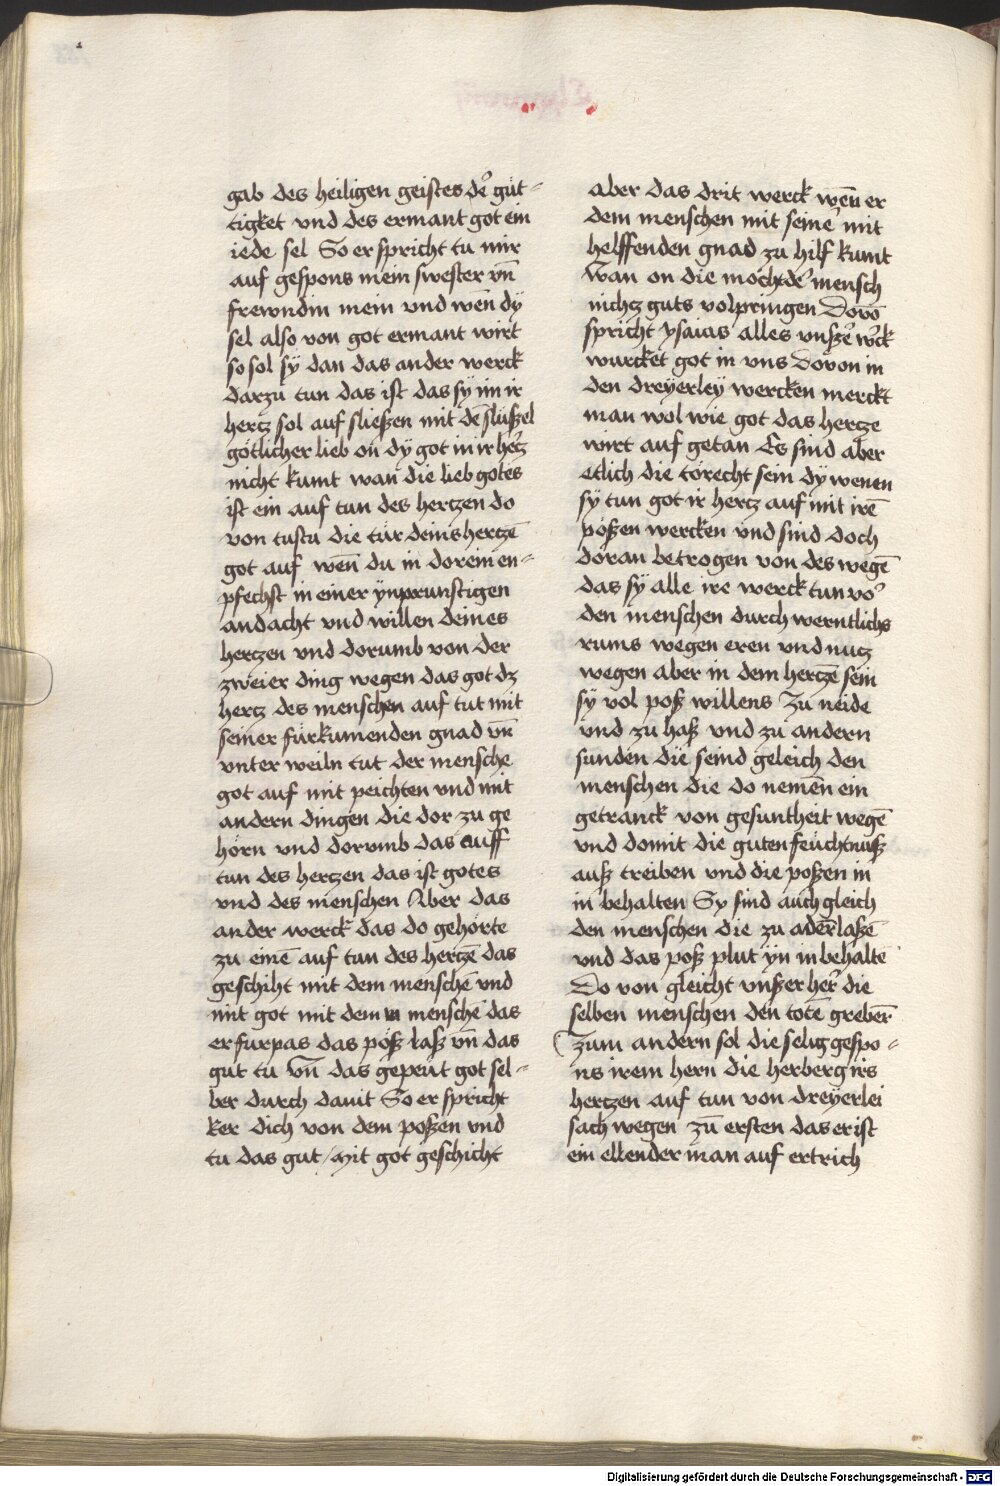 gab des heiligen geistes der̾ güt-
tigket vnd des ermant got ein
iede sel So er spricht tu mir
auf gespons mein swester vn̄
frewndin mein vnd wen̄ dy
sel also von got ermant wirt
so sol sÿ dan das ander werck
darzu tun das ist das sy im ir
hertz sol auf sließen mit dē slüßzel
götlicher lieb on dy got in ir hertz
nicht kumt wan die lieb gotes
ist ein auf tun des hertzen do
von tustu die tür deins hertzē
got auf wen̄ du in dorein en-
pfechst in einer ynprunstigen
andacht vnd willen deines
hertzen vnd dorumb von der
zweier ding wegen das got dz
hertz des menschen auf tut mit
seiner fürkumenden gnad vn̄
vnter weiln tut der mensche
got auf mit peichten vnd mit
andern dingen die dor zu ge
hörn vnd dorumb das auff
tun des hertzen das ist gotes
vnd des menschen Aber das
ander werck das do gehörte
zu einē auf tun des hertzē das
geschiht mit dem menschē vnd
mit got mit dem menschē das
er fürpas das pöß laß vn̄ das
gut tu vn̄ das geprüt got sel-
ber durch dauit So er spricht
ker dich von dem poßen vnd
tu das gut / Mit got geschicht
aber das drit werck wen̄ er
dem menschen mit seinē mit
helffenden gnad zu hilf kumt
wan on die möcht der̾ mensch
nichcz guts volpringen Dovō
spricht ysaias alles vnßer̾ werck
wurcket got in vns Dovon in
den dreyerley wercken merckt
man wol wie got das hertze
wirt auf getan Es sind aber
etlich die törecht sein dy wenen
sÿ tun got ir hertz auf mit irē
poßen wercken vnd sind doch
doran betrogen von des wegē
das sÿ alle ire werck tun vor̾
den menschen durch werntlichs
rums wegen eren vnd nucz
wegen aber in dem hertzē sein
sÿ vol poß willens Zu neide
vnd zu haß vnd zu andern
sunden die seind geleich den
menschen die do nemen̄ ein
getranck von gesuntheit wegē
vnd domit die guten feuchtnuß
auß treiben vnd die poßen in
in behalten Sy sind auch gleich
den menschen die zu aderlaßē
vnd das poß plut yn in behaltē
Do von gleicht vnßer her̾ die
selben menschen den totē grebern̄
Zum andern sol die selig gespo-
ns irem hern die herberg irs
hertzen auf tun von dreyerlei
sach wegen zū ersten das er ist
ein ellender man auf ertrich
Digitalisierung gefördert durch die Deutsche Forschungsgemeinschaft - DFG